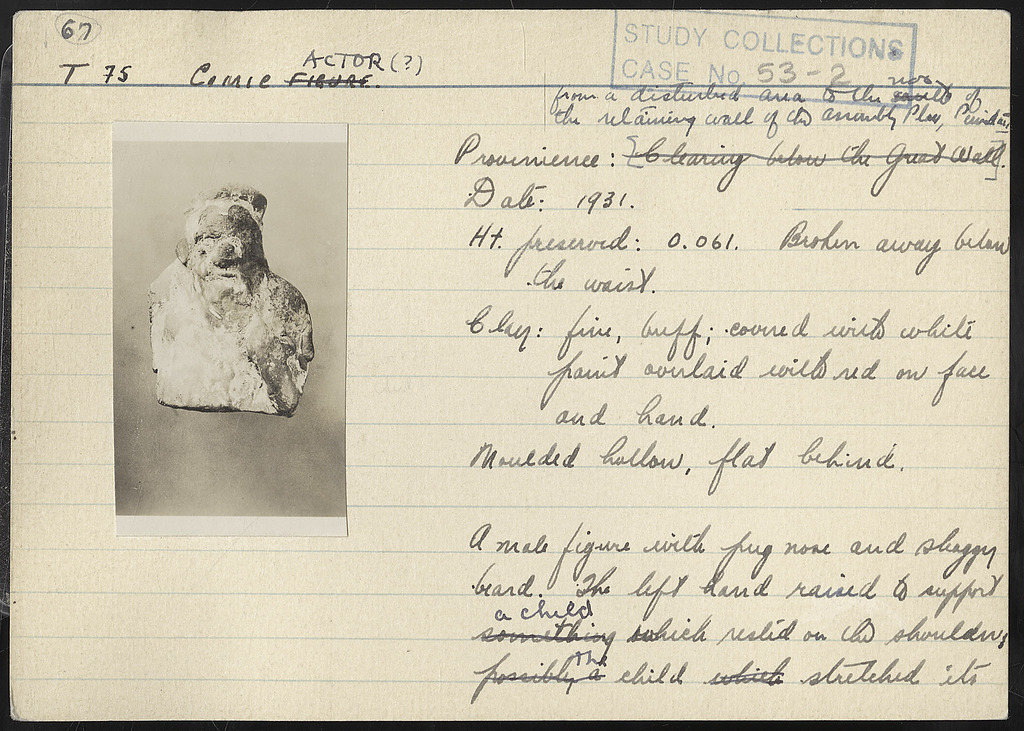 67
STUDY COLLECTIONS
CASE No. 53-2
ACTOR (?)
T 75 Comic FIGURE.
nor
from a disturbed area to the south of
the retaining wall of the assembly Place, Period
Provenience: [Clearing below the Great Wall].
Date: 1931.
Ht. preserved: 0.061. Broken away below
the waist.
Clay: fine, buff; covered with white
paint overlaid with red on face
and hand.
Moulded hollow, flat behind.
A male figure with pug nose and shaggy
beard. The left hand raised to support
a child
something which rested on the shoulder;
The
possibly a child which stretched its